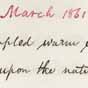 March 1861
upled warm
upon the nat